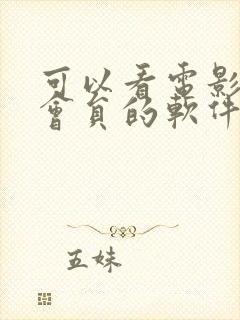 可以看電影
會員的軟件
五妹